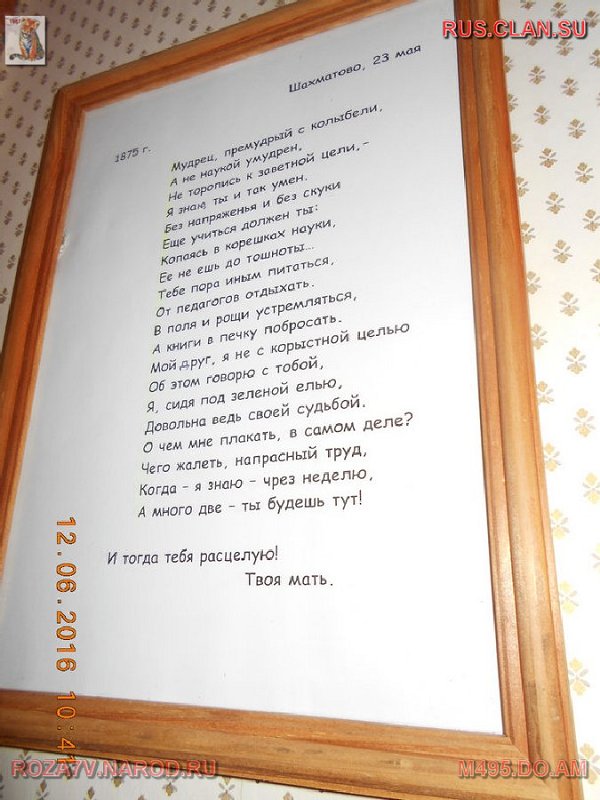 RUS.CLAN.SU
Шахматово, 23 мая
1875 г.
Мудрец, премудрый с колыбели,
А не наукой умудрен,
Не торопись к заветной цели,-
Я знаю, ты и так умен.
Без напряженья и без скуки
Еще учиться должен ты:
Копаясь в корешках науки,
Ее не ешь до тошноты...
Тебе пора иным питаться,
От педагогов отдыхать.
В поля и рощи устремляться,
А книги в печку побросать.
Мой друг, я не с корыстной целью
Об этом говорю с тобой,
Я, сидя под зеленой елью,
Довольна ведь своей судьбой.
О чем мне плакать, в самом деле?
Чего жалеть, напрасный труд,
Когда – я знаю – чрез неделю,
А много две – ты будешь тут!
И тогда тебя расцелую!
Твоя мать.
12.06.2016 10:41
ROZA7V.NAROD.RU
M495.DO.AM